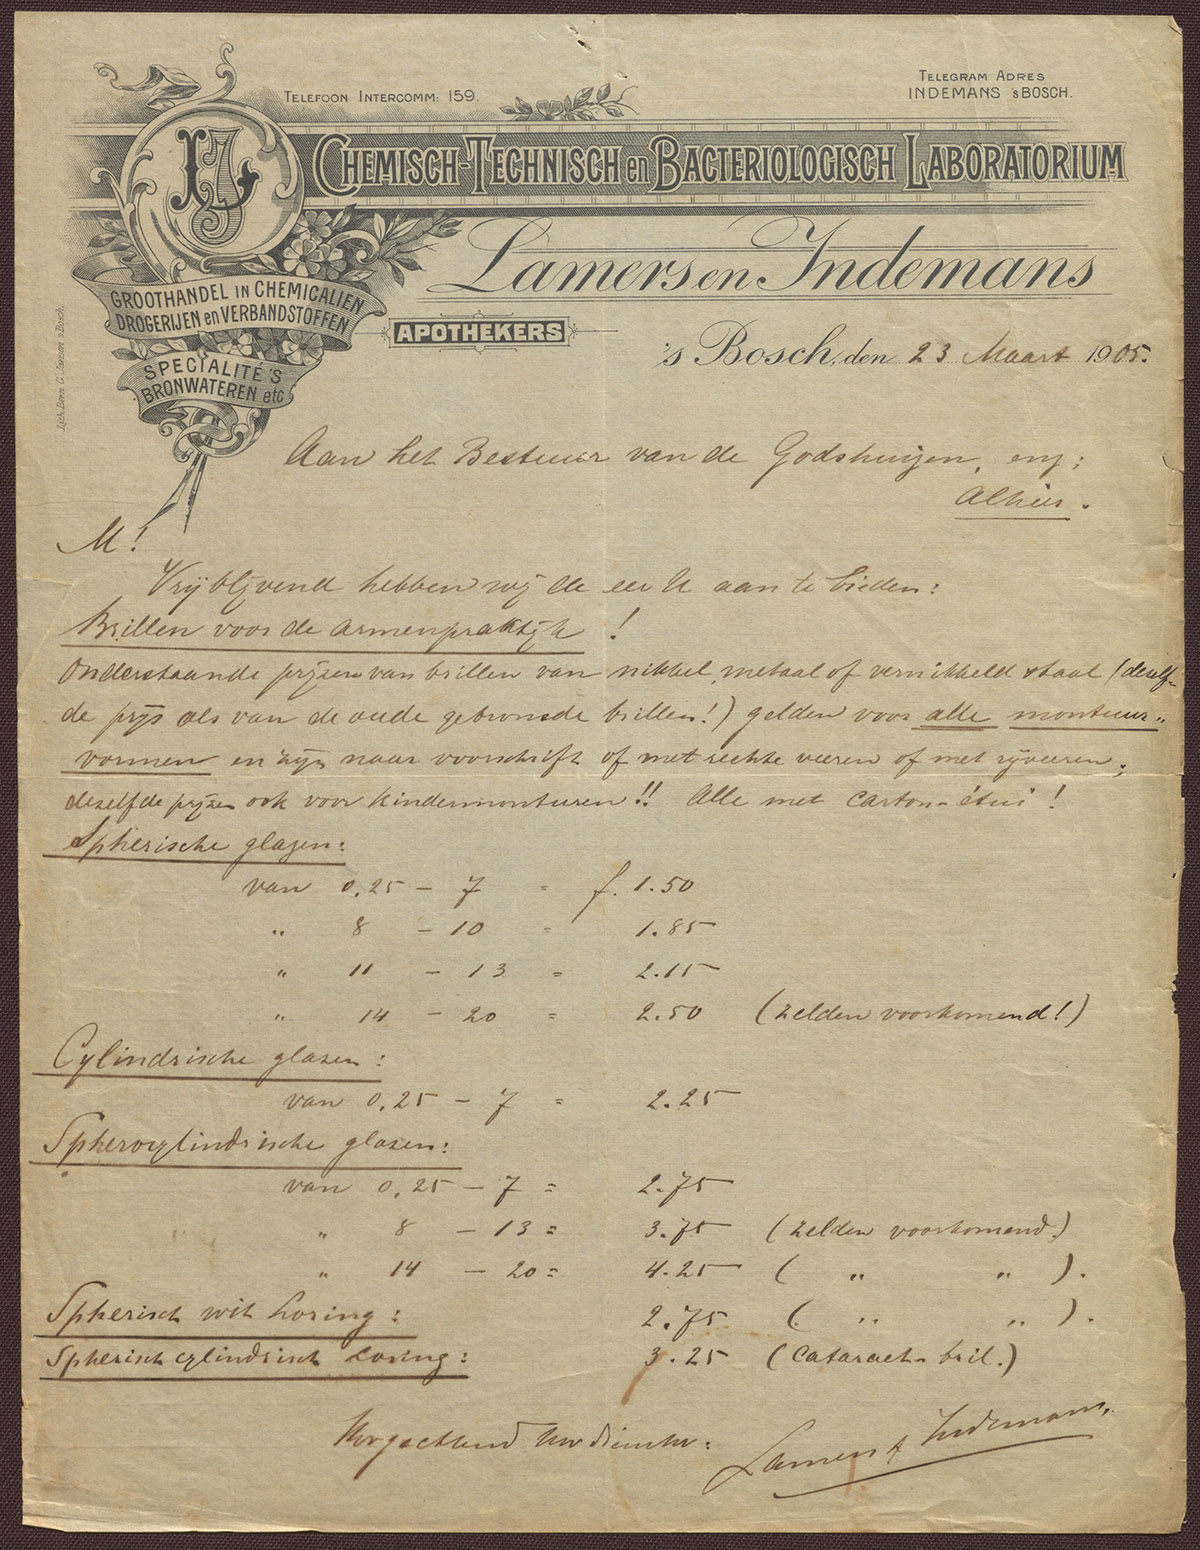 Telefoon Intercomm: 159.
Telegram Adres
INDEMANS 's BOSCH.
LJ
Chemisch-Technisch en Bacteriologisch Laboratorium
Lamers en Indemans
GROOTHANDEL IN CHEMICALIEN
DROGERIJEN en VERBANDSTOFFEN
APOTHEKERS
SPECIALITÉ'S
BRONWATEREN etc
's Bosch, den 23 Maart 1905.
Aan het Bestuur van de Godshuizen, enz:
Alhier.
M!
Vrijblijvend hebben wij de eer U aan te bieden:
Brillen voor de armenpraktijk !
Onderstaande prijzen van brillen van nikkel metaal of vernikkeld staal (dezelf-
de prijs als van de oude gebronsde brillen!) gelden voor alle montuur-
vormen en zijn naar voorschrift of met rechte veeren of met rijveeren;
dezelfde prijzen ook voor kindermonturen!! Alle met carton-étui !
Spherische glazen:
van 0,25 - 7 = f. 1.50
" 8 - 10 = 1.85
" 11 - 13 = 2.15
" 14 - 20 = 2.50 (zelden voorkomend!)
Cylindrische glazen:
van 0,25 - 7 = 2.25
Spherocylindrische glazen:
van 0,25 - 7 = 2.75
" 8 - 13 = 3.75 (zelden voorkomend.)
" 14 - 20 = 4.25 ( " " ).
Spherisch wit Loring: 2.75 ( " " ).
Spherisch cylindrisch Loring: 3.25 (Cataract-bril.)
Hoogachtend Uw dienaar:
Lamers & Indemans.